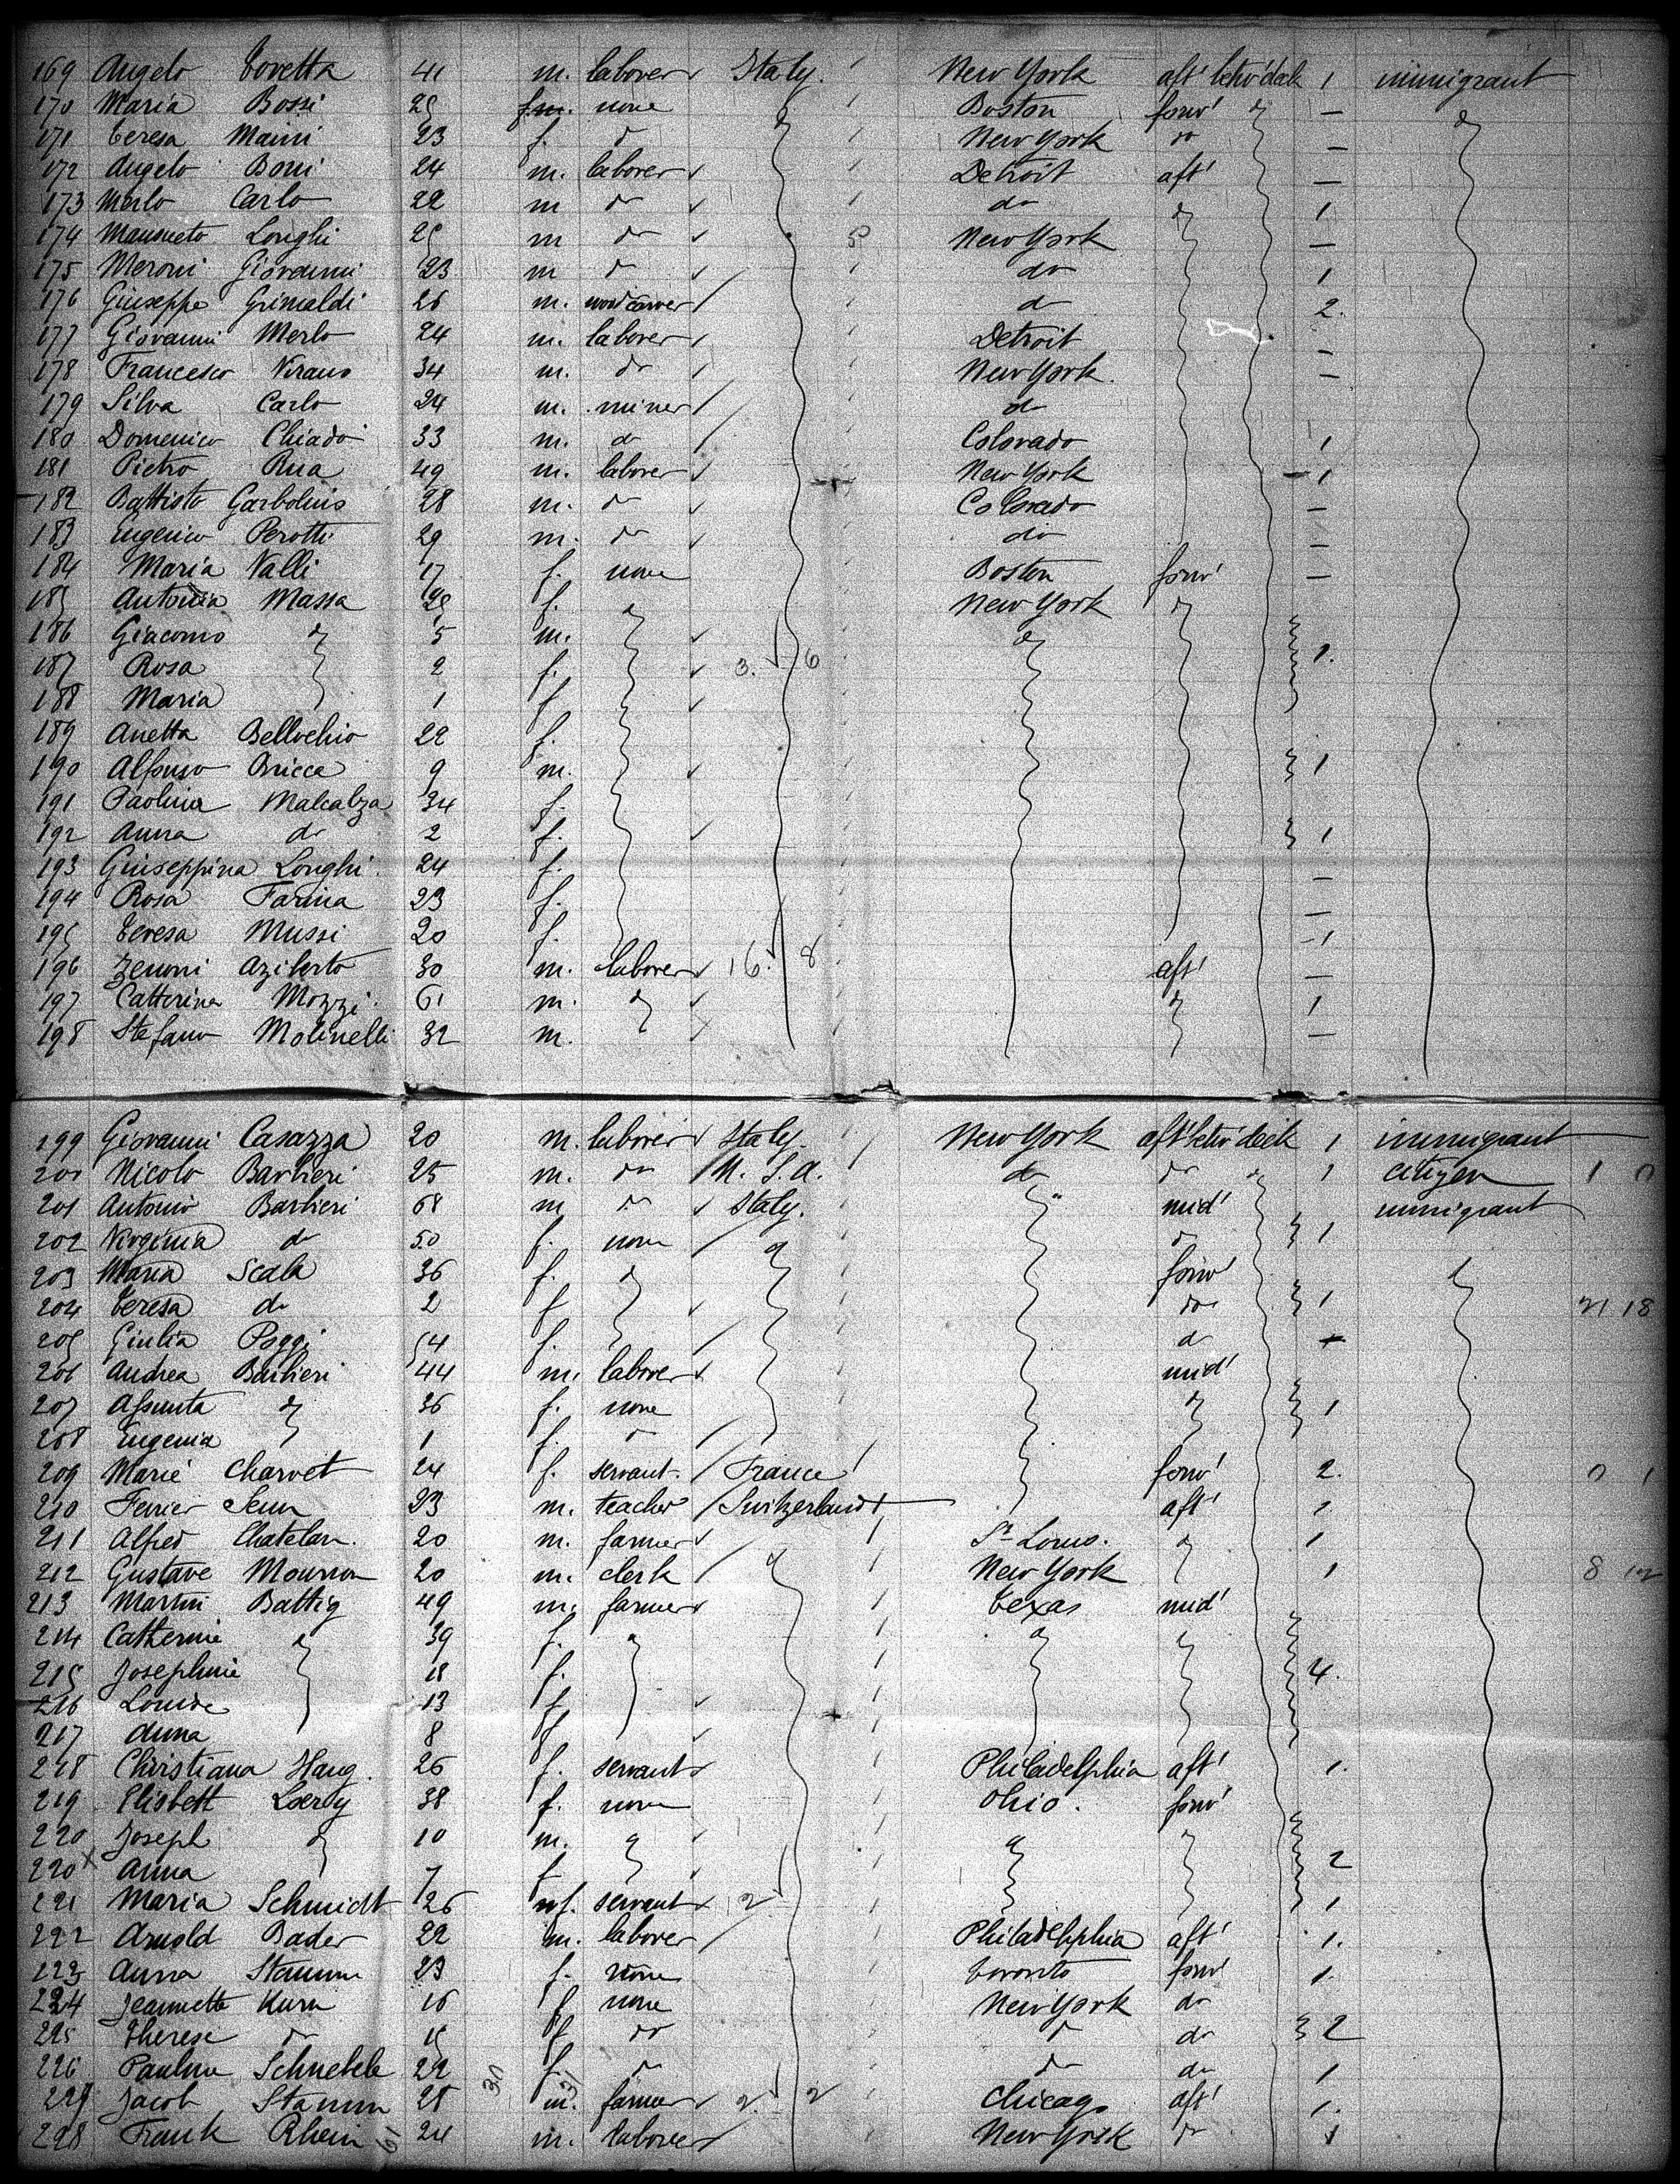 169 Angelo Covetta 41 m. laborer Italy. New York aft' betw' deck 1 immigrant
170 Maria Bossi 25 f. none Boston forw' —
171 Ceresa Maini 23 f. do New York do —
172 Angelo Boni 24 m. laborer Detroit aft' —
173 Merlo Carlo 22 m do do 1
174 Mansueto Longhi 25 m do 5 New York —
175 Meroni Giovanni 23 m do do 1
176 Giuseppe Grimaldi 26 m. woodcarver do 2.
177 Giovanni Merlo 24 m. laborer Detroit —
178 Francesco Virano 34 m. do New York. —
179 Silva Carlo 24 m. miner do
180 Domenico Chiado 33 m. do Colorado 1
181 Pietro Rua 49 m. laborer New York 1
182 Battista Garbolino 28 m. do Colorado —
183 Eugenio Perotti 29 m. do do —
184 Maria Valli 17 f. none Boston forw' —
185 Antonia Massa 25 f. New York
186 Giacomo 5 m.
187 Rosa 2 f. 3. 6 1.
188 Maria 1 f
189 Anetta Bellochio 22 f.
190 Alfonso Bricca 9 m. 1
191 Paolina Malcalza 34 f.
192 Anna do 2 f. 1
193 Giuseppina Longhi. 24 f. —
194 Rosa Farina 23 f. —
195 Ceresa Mussi 20 f. 1
196 Zenoni Aziberto 30 m. laborer 16. 8 aft' —
197 Catterina Mozzi 61 m. 1
198 Stefano Molinelli 32 m. —
199 Giovanni Casazza 20 m. laborer Italy New York aft' betw' deck 1 immigrant
200 Nicolo Barbieri 25 m. do U. S. A. do do 1 citizen 1 0
201 Antonio Barbieri 68 m do Italy. " mid' immigrant
202 Virginia do 50 f. none do 1
203 Maria Scala 36 f. forw'
204 Ceresa do 2 f do 1 21 18
205 Giulia Poggi 54 f. do
206 Andrea Barbieri 44 m. laborer mid'
207 Assunta 36 f. none 1
208 Eugenia 1 f. do
209 Marie Charvet 24 f. servant. France forw' 2. 0 1
210 Ferrier Jenn 23 m. teacher Switzerland aft' 1
211 Alfred Chatelan. 20 m. farmer St Louis. 1
212 Gustave Mourron 20 m. clerk New York 1 8 12
213 Martin Battig 49 m. farmer Texas mid'
214 Catherine 39 f.
215 Josephine 18 f. 4.
216 Louise 13 f
217 Anna 8 f
218 Christiana Haug. 26 f. servant Philadelphia aft' 1.
219 Elisbett Loerly 38 f. none Ohio. forw'
220 Joseph 10 m.
220 x Anna 7 f 2
221 Maria Schmidt 26 f. servant 2 1
222 Arnold Bader 22 m. laborer Philadelphia aft' 1.
223 Anna Stamm 23 f. none Toronto forw' 1.
224 Jeannette Kurn 16 f none New York do
225 Therese do 15 f do do do 2
226 Pauline Schnebele 22 f. do do do 1
227 Jacob Stamm 28 m. farmer 2. 2 Chicago aft' 1.
228 Frank Rhein 24 m. laborer New York do 1
30 31
61